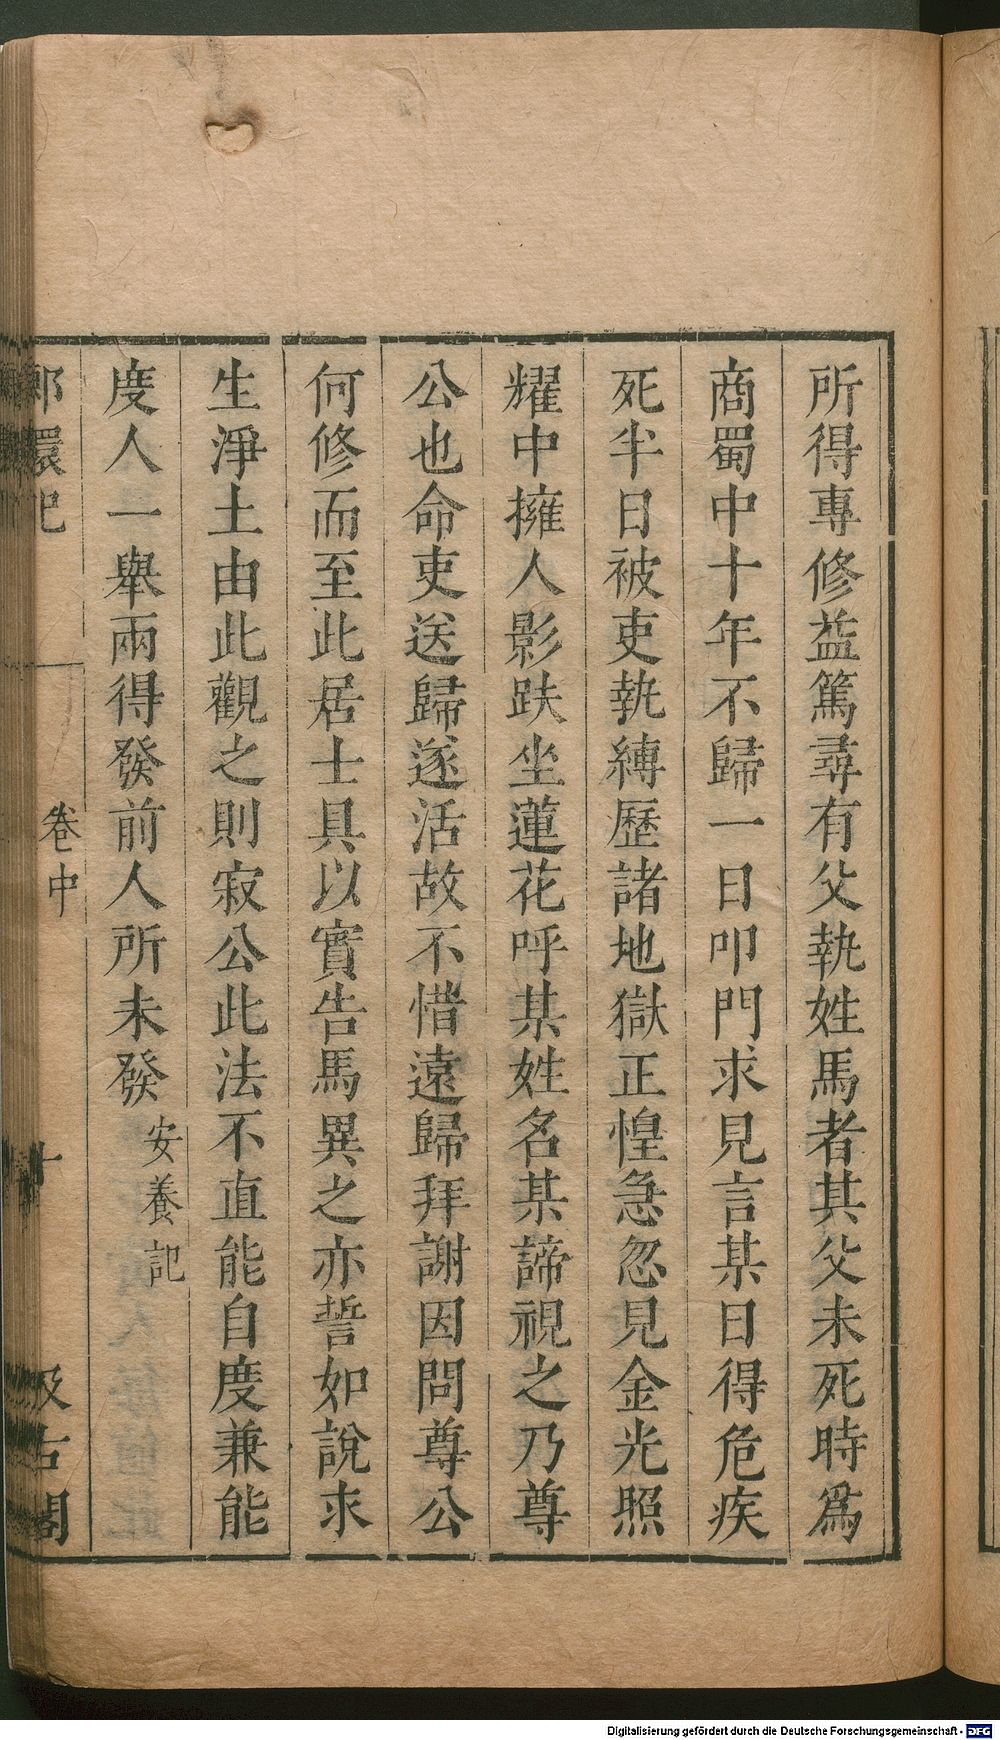 所得專修益篤尋有父執姓馬者其父未死時爲
商蜀中十年不歸一日叩門求見言某日得危疾
死半日被吏執縛歷諸地獄正惶急忽見金光照
耀中擁人影趺坐蓮花呼某姓名某諦視之乃尊
公也命吏送歸遂活故不惜遠歸拜謝因問尊公
何修而至此居士具以實告馬異之亦誓如說求
生淨土由此觀之則寂公此法不直能自度兼能
度人一舉兩得發前人所未發
安養記
卷中
十
汲古閣
Digitalisierung gefördert durch die Deutsche Forschungsgemeinschaft - DFG